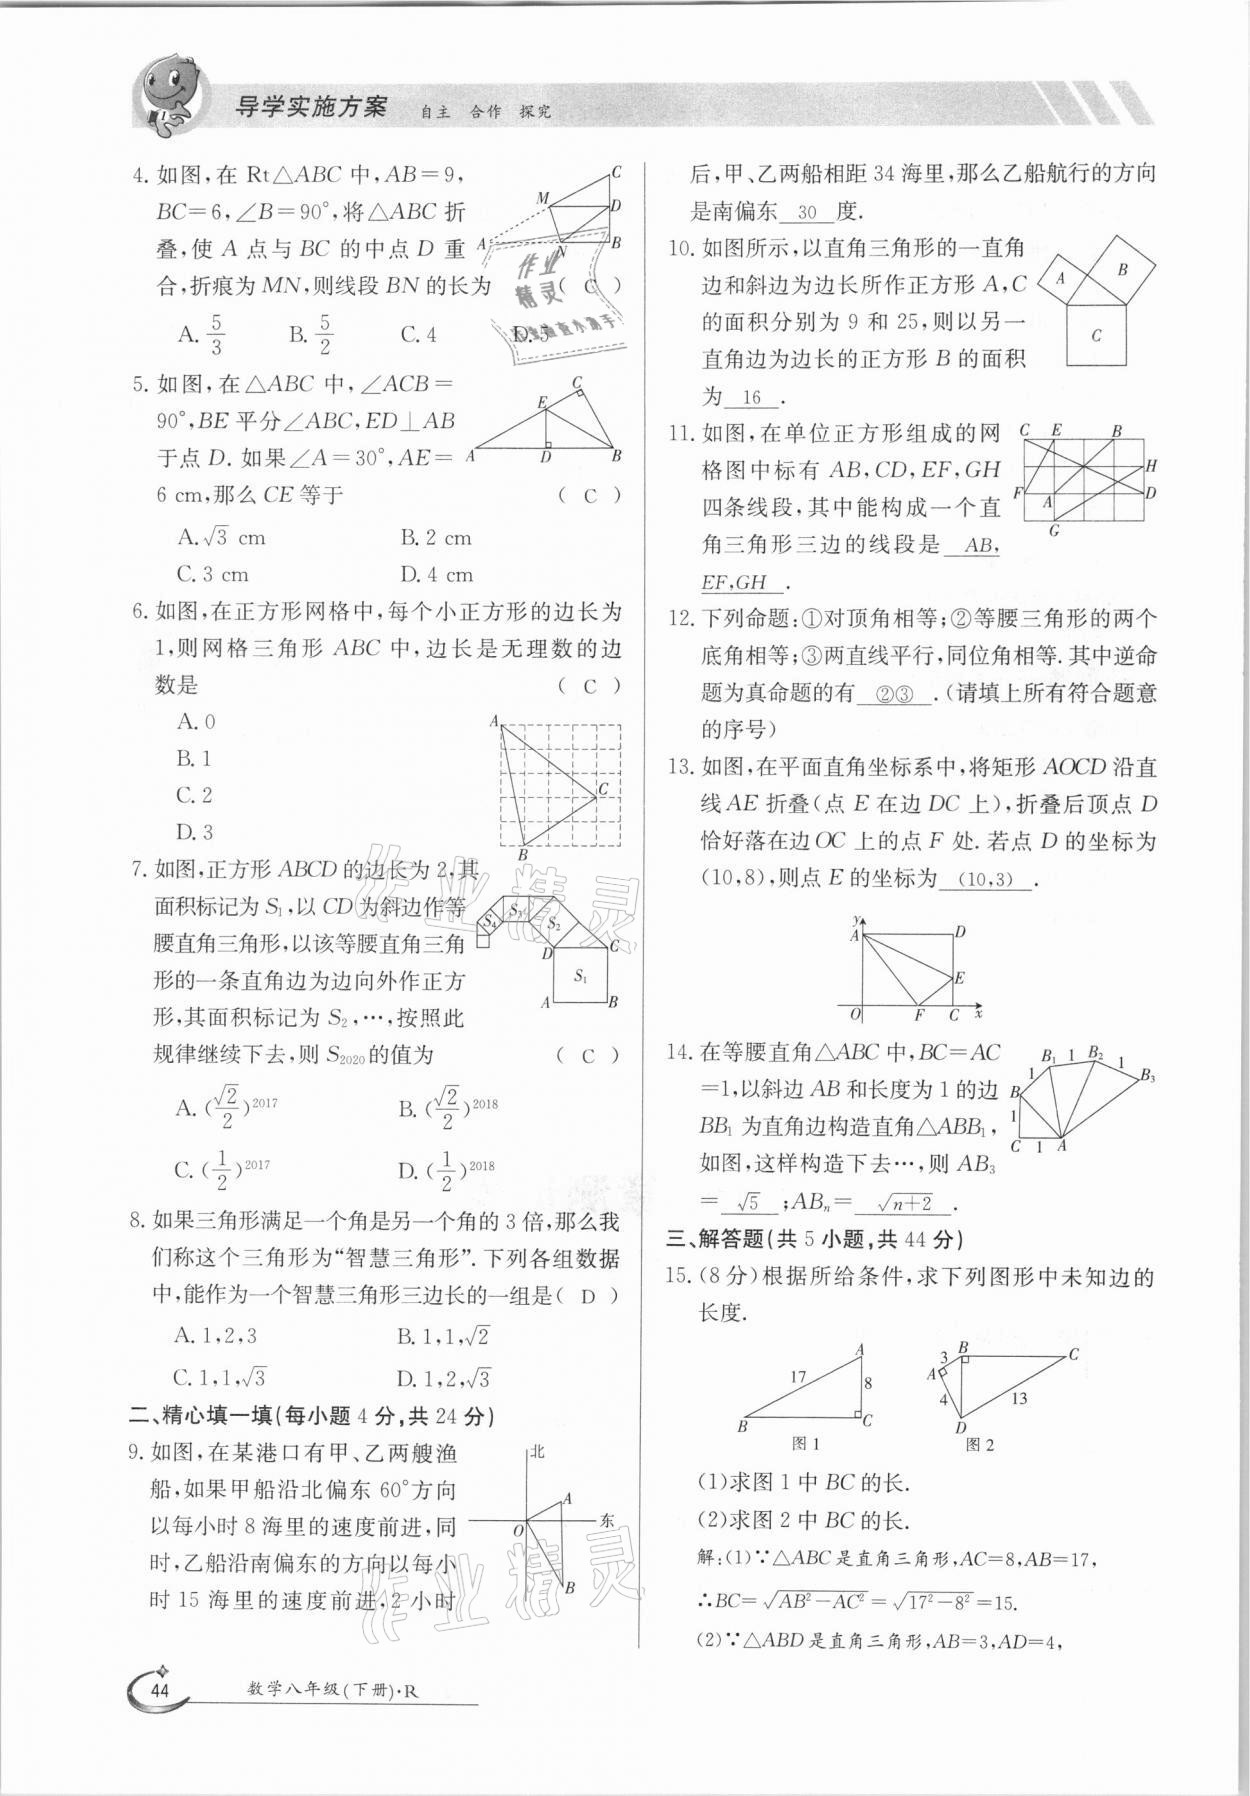 导学实施方案 自主 合作 探究
4. 如图,在 Rt△ABC 中,AB=9,
BC=6,∠B=90°,将△ABC 折
叠,使 A 点与 BC 的中点 D 重
合,折痕为MN,则线段 BN 的长为 ( C )
A. 5/3 B. 5/2 C. 4 D. 5
C
M
D
A
N
B
5. 如图,在△ABC 中,∠ACB=
90°,BE 平分∠ABC,ED⊥AB
于点 D. 如果∠A=30°,AE=
6 cm,那么 CE 等于 ( C )
A. √3 cm B. 2 cm
C. 3 cm D. 4 cm
C
E
A D B
6. 如图,在正方形网格中,每个小正方形的边长为
1,则网格三角形 ABC 中,边长是无理数的边
数是 ( C )
A. 0
B. 1
C. 2
D. 3
A
C
B
7. 如图,正方形 ABCD 的边长为 2,其
面积标记为 S₁,以 CD 为斜边作等
腰直角三角形,以该等腰直角三角
形的一条直角边为边向外作正方
形,其面积标记为 S₂,…,按照此
规律继续下去,则 S₂₀₂₀ 的值为 ( C )
A. (√2/2)²⁰¹⁷ B. (√2/2)²⁰¹⁸
C. (1/2)²⁰¹⁷ D. (1/2)²⁰¹⁸
S₄ S₃ S₂
D C
S₁
A B
8. 如果三角形满足一个角是另一个角的 3 倍,那么我
们称这个三角形为“智慧三角形”. 下列各组数据
中,能作为一个智慧三角形三边长的一组是( D )
A. 1,2,3 B. 1,1,√2
C. 1,1,√3 D. 1,2,√3
二、精心填一填(每小题 4 分,共 24 分)
9. 如图,在某港口有甲、乙两艘渔
船,如果甲船沿北偏东 60°方向
以每小时 8 海里的速度前进,同
时,乙船沿南偏东的方向以每小
时 15 海里的速度前进,2 小时
北
A
O 东
B
后,甲、乙两船相距 34 海里,那么乙船航行的方向
是南偏东 30 度.
10. 如图所示,以直角三角形的一直角
边和斜边为边长所作正方形 A,C
的面积分别为 9 和 25,则以另一
直角边为边长的正方形 B 的面积
为 16 .
A B
C
11. 如图,在单位正方形组成的网
格图中标有 AB,CD,EF,GH
四条线段,其中能构成一个直
角三角形三边的线段是 AB,
EF,GH .
C E B
H
F A D
G
12. 下列命题:①对顶角相等;②等腰三角形的两个
底角相等;③两直线平行,同位角相等. 其中逆命
题为真命题的有 ②③ .(请填上所有符合题意
的序号)
13. 如图,在平面直角坐标系中,将矩形 AOCD 沿直
线 AE 折叠(点 E 在边 DC 上),折叠后顶点 D
恰好落在边 OC 上的点 F 处. 若点 D 的坐标为
(10,8),则点 E 的坐标为 (10,3) .
y
A D
E
O F C x
14. 在等腰直角△ABC 中,BC=AC
=1,以斜边 AB 和长度为 1 的边
BB₁ 为直角边构造直角△ABB₁,
如图,这样构造下去…,则 AB₃
= √5 ;ABₙ= √n+2 .
B₁ 1 B₂
1 1
B B₃
1
C 1 A
三、解答题(共 5 小题,共 44 分)
15. (8 分)根据所给条件,求下列图形中未知边的
长度.
A
17 8
B C
图 1
3 B C
A
4 13
D
图 2
(1)求图 1 中 BC 的长.
(2)求图 2 中 BC 的长.
解:(1)∵△ABC 是直角三角形,AC=8,AB=17,
∴BC=√AB²−AC²=√17²−8²=15.
(2)∵△ABD 是直角三角形,AB=3,AD=4,
44 数学八年级(下册)·R
作业精灵
作业精灵
作业精灵